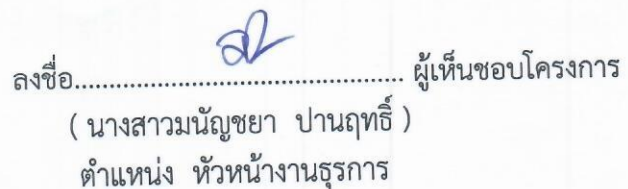 ลงชื่อ........................................... ผู้เห็นชอบโครงการ
( นางสาวมนัญชยา ปานฤทธิ์ )
ตำแหน่ง หัวหน้างานธุรการ